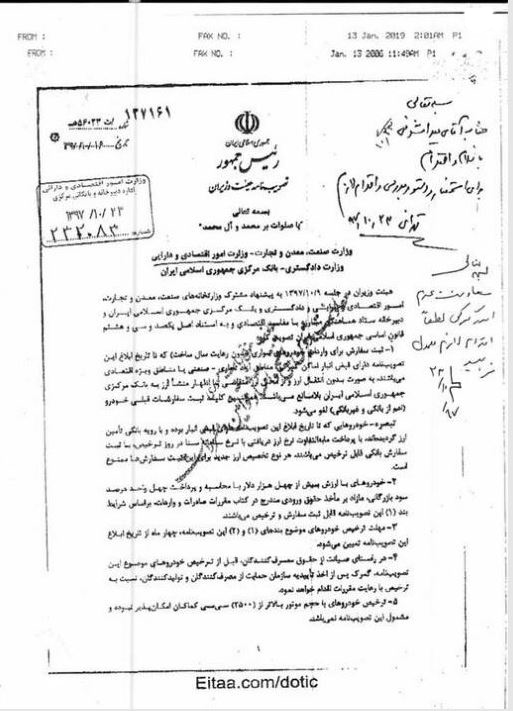 FROM :
FAX NO. :
13 Jan. 2019 2:01AM P1
FROM :
FAX NO. :
Jan. 13 2006 11:49AM P1
۱۲۷۱۶۱
جمهوری اسلامی ایران
رئیس جمهور
تصویب نامه هیئت وزیران
بسمه تعالی
"با صلوات بر محمد و آل محمد"
وزارت امور اقتصادی و دارائی
اداره دبیرخانه و بایگانی مرکزی
۱۳۹۷/۱۰/۲۳
۲۳۲۰۸۳
بسمه تعالی
وزارت صنعت، معدن و تجارت- وزارت امور اقتصادی و دارایی
وزارت دادگستری- بانک مرکزی جمهوری اسلامی ایران
هیئت وزیران در جلسه ۱۳۹۷/۱۰/۹ به پیشنهاد مشترک وزارتخانه‌های صنعت، معدن و تجارت،
امور اقتصادی و دارایی و دادگستری و بانک مرکزی جمهوری اسلامی ایران و
دبیرخانه ستاد هماهنگی مبارزه با مفاسد اقتصادی و به استناد اصل یکصد و سی و هشتم
قانون اساسی جمهوری اسلامی ایران تصویب کرد:
۱- ثبت سفارش برای واردات خودروهای سواری (بدون رعایت سال ساخت) که تا تاریخ ابلاغ این
تصویب‌نامه دارای قبض انبار اماکن گمرکی، مناطق آزاد تجاری - صنعتی یا مناطق ویژه اقتصادی
می‌باشند، به صورت بدون انتقال ارز و از محل ارز متقاضی با اظهار منشأ ارز به بانک مرکزی
جمهوری اسلامی ایران بلامانع می‌باشد. همچنین کلیه ثبت سفارشات قبلی خودرو
(اعم از بانکی و غیربانکی) لغو می‌شود.
تبصره- خودروهایی که تا تاریخ ابلاغ این تصویب‌نامه دارای قبض انبار بوده و با رویه بانکی تأمین
ارز گردیده‌اند، با پرداخت مابه‌التفاوت نرخ ارز دریافتی با نرخ سامانه سنا در روز ترخیص، با ثبت
سفارش بانکی قابل ترخیص می‌باشند. هر نوع تخصیص ارز جدید برای این ثبت سفارش‌ها ممنوع
است.
۲- خودروهای با ارزش بیش از چهل هزار دلار با محاسبه و پرداخت چهل واحد درصد
سود بازرگانی، مازاد بر مأخذ حقوق ورودی مندرج در کتاب مقررات صادرات و واردات، براساس شرایط
بند (۱) این تصویب‌نامه قابل ثبت سفارش و ترخیص می‌باشند.
۳- مهلت ترخیص خودروهای موضوع بندهای (۱) و (۲) این تصویب‌نامه، چهار ماه از تاریخ ابلاغ
این تصویب‌نامه تعیین می‌شود.
۴- در راستای صیانت از حقوق مصرف‌کنندگان، قبل از ترخیص خودروهای موضوع این
تصویب‌نامه، گمرک پس از اخذ تأییدیه سازمان حمایت از مصرف‌کنندگان و تولیدکنندگان، نسبت به
ترخیص با رعایت مقررات اقدام خواهد نمود.
۵- ترخیص خودروهای با حجم موتور بالاتر از (۲۵۰۰) سی‌سی کماکان امکان‌پذیر نبوده و
مشمول این تصویب‌نامه نمی‌باشند.
۱
Eitaa.com/dotic